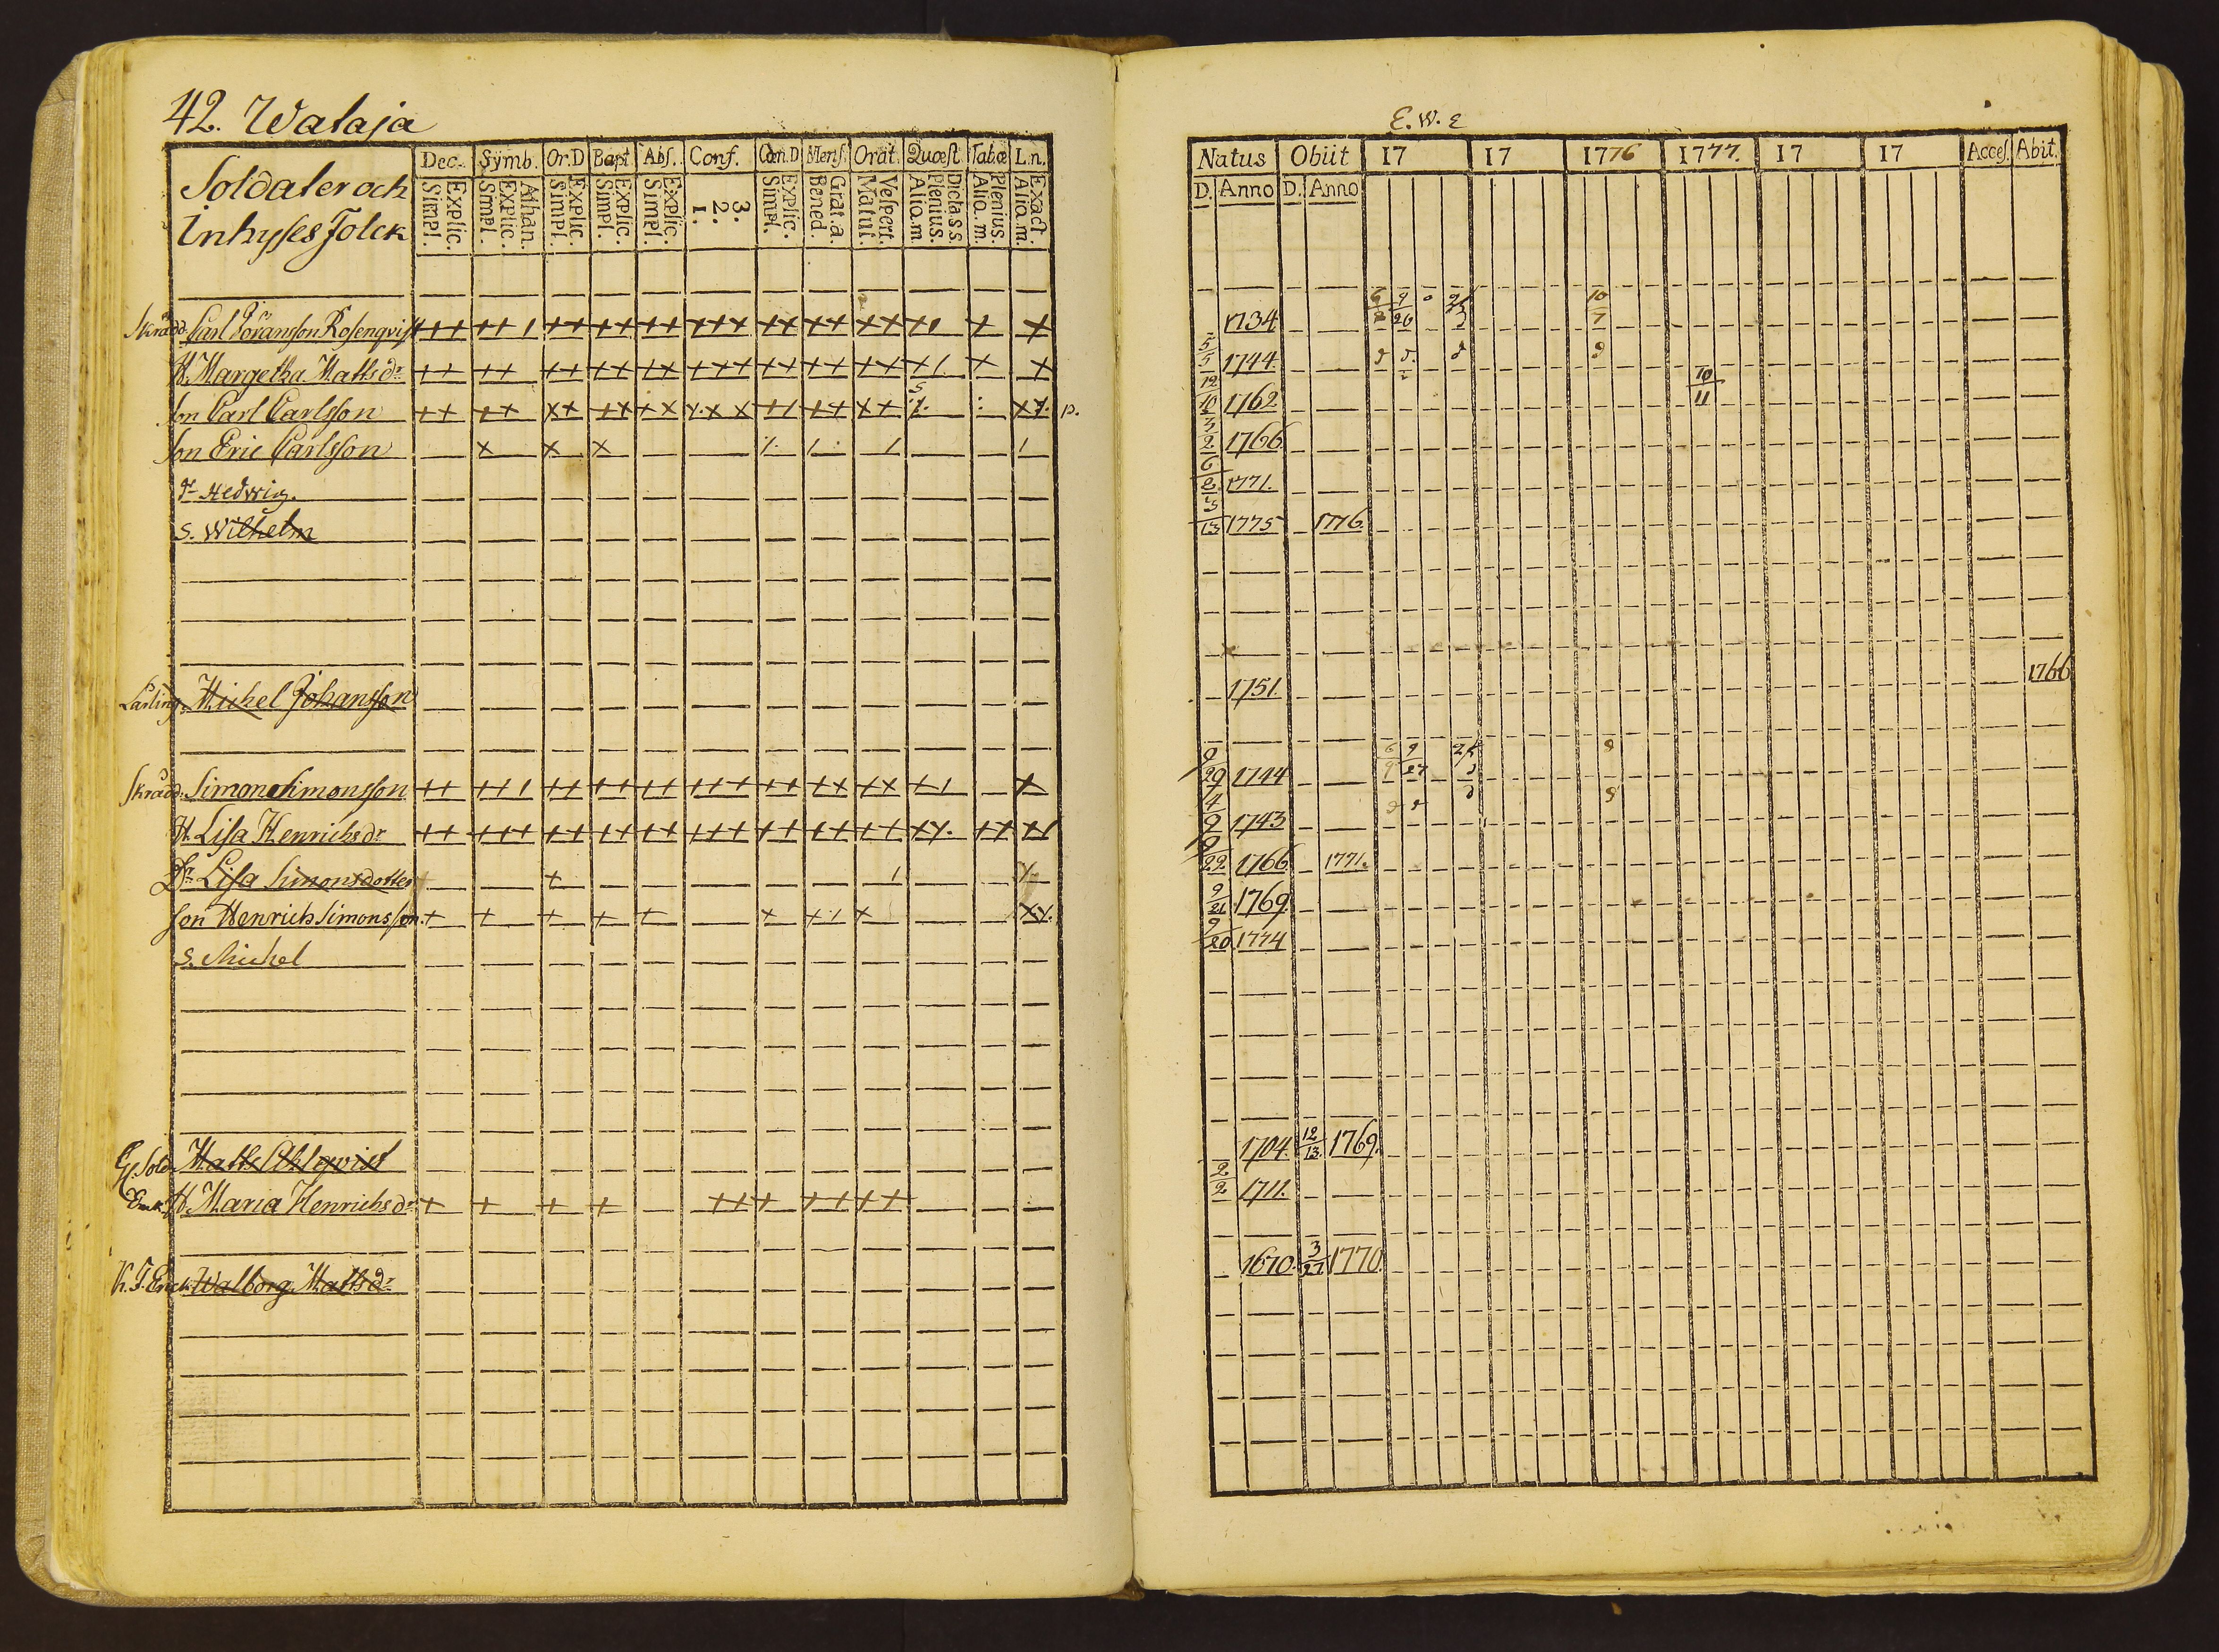 42. Wataja
Soldater och
Inhyses Folck
Dec. Symb. Or.D Bapt Abs. Conf. Cœn.D Mens. Orat. Quæst. Tabæ L.n.
Explic. Simpl. Athan. Explic. Simpl. Explic. Simpl. Explic. Simpl. Explic. Simpl. 3. 2. 1. Explic. Simpl. Grat. a. Bened. Vespert. Matut. Dicta s s Plenius. Aliq.m. Plenius. Aliq. m. Exact. Aliq.m.
Skrädd. Carl Göransson Rosenqvist
H. Margetha Matts dr
Son Carl Carlsson
Son Eric Carlsson
dr Hedwig.
S. Wilhelm
Lärling. Michel Johansson
Skrädd. Simon Simonsson
H. Lisa Henrichs dr
Dr Lisa Simonsdotter
Son Henrich Simonsson
S. Michel
Sold. Matts Ahlqvist
Enk. H. Maria Henrichs dr
Enck. Walborg Matts dr
E. W. E
Natus Obiit 17 17 1776 1777. 17 17 Acces. Abit.
D. Anno D. Anno
1734
5/5 1744.
12/10 1762
3/2 1766
6/2 1771.
13 1775 1776
1751. 1766
9/29 1744
4/9 1743
22 1766 1771.
9/21 1769.
9/20 1774
1704. 12/13. 1769.
2/2 1711.
1670. 3/27 1770.